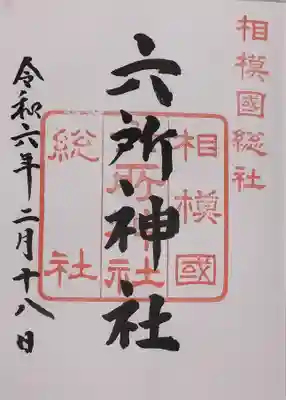 相模國総社
相模國
六所神社
総社
六所神社
令和六年二月十八日